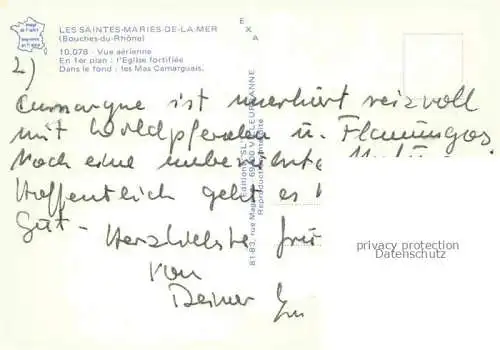 LES SAINTES-MARIES-DE-LA-MER
(Bouches-du-Rhône)
10.078 - Vue aérienne
En 1er plan : l'Eglise fortifiée
Dans le fond : les Mas Camarguais.
E X A
2)
Camargue ist unerhört reizvoll
mit Wildpferden u. Flamingos.
Noch eine
Hoffentlich geht es
Gut - Herzlichste
von
Deiner
81-83, rue
Reproduction interdite
privacy protection
Datenschutz